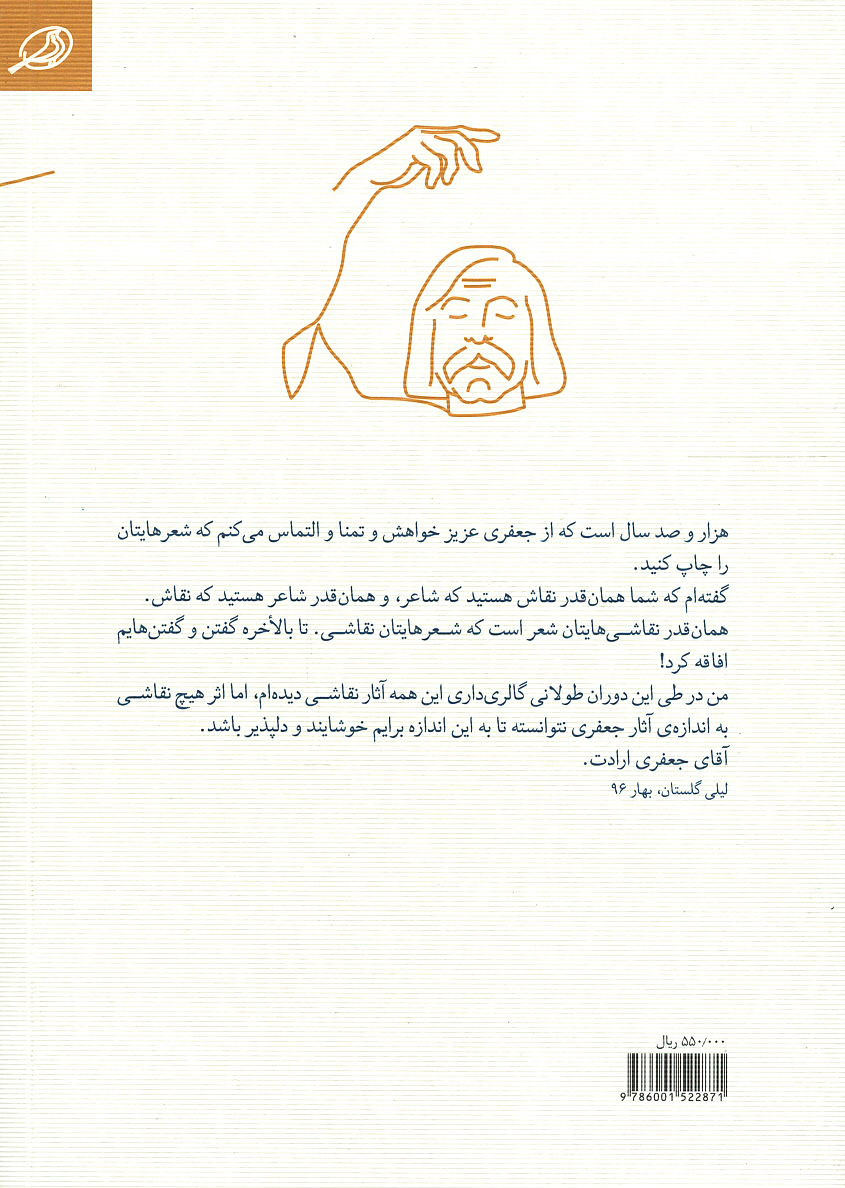 هزار و صد سال است که از جعفری عزیز خواهش و تمنا و التماس می‌کنم که شعرهایتان
را چاپ کنید.
گفته‌ام که شما همان‌قدر نقاش هستید که شاعر، و همان‌قدر شاعر هستید که نقاش.
همان‌قدر نقاشــی‌هایتان شعر است که شــعرهایتان نقاشــی. تا بالأخره گفتن و گفتن‌هایم
افاقه کرد!
من در طی این دوران طولانی گالری‌داری این همه آثار نقاشــی دیده‌ام، اما اثر هیچ نقاشــی
به اندازه‌ی آثار جعفری نتوانسته تا به این اندازه برایم خوشایند و دلپذیر باشد.
آقای جعفری ارادت.
لیلی گلستان، بهار ۹۶
۵۵۰/۰۰۰ ریال
9 786001 522871